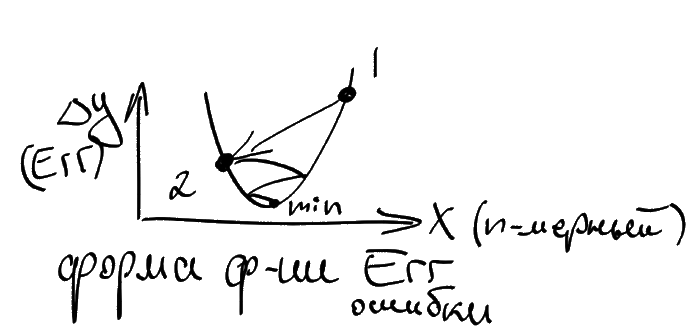 1
Δy
(Err)
2
min
X (n-мерный)
форма ф-ии Err
ошибки